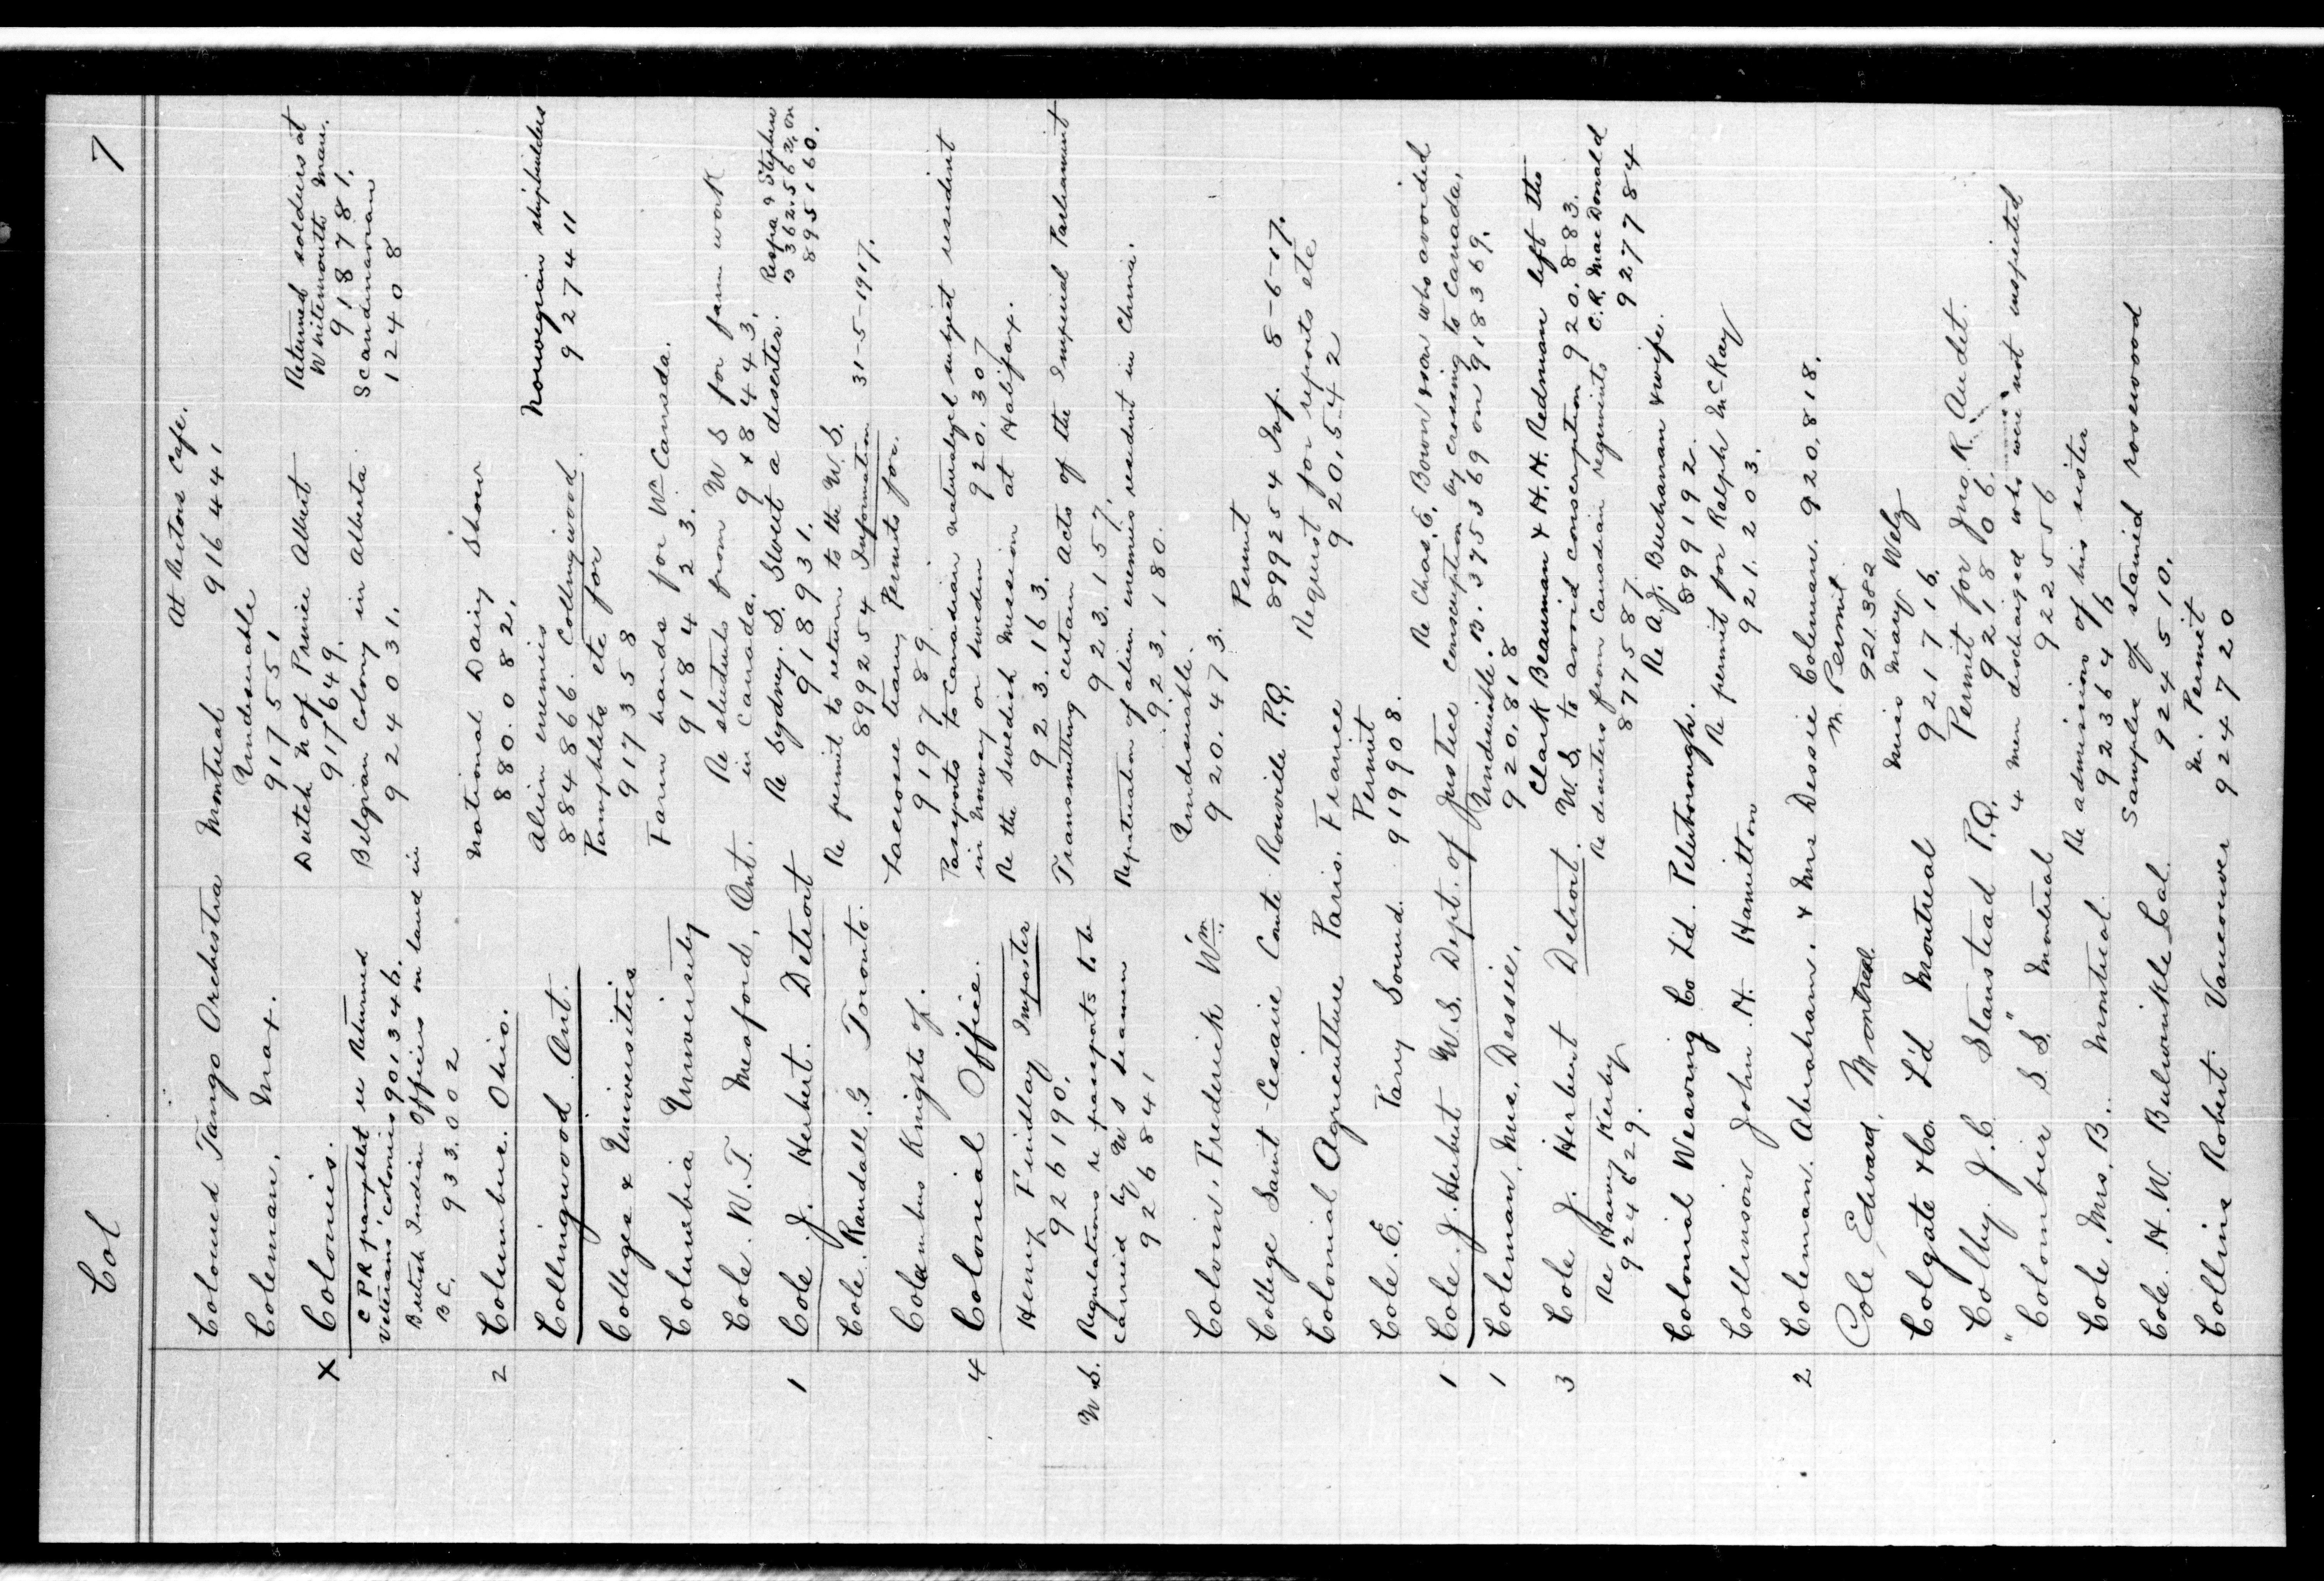 Col 7
Coloured Tango Orchestra Montreal At Rectors Cafe.
916441
Coleman, Max. Undesirable
917551
X Colonies. Dutch N of Prince Albert
917649.
Returned soldiers at
Whitemouth Man.
918781.
C P R pamphlet re Returned
Veterans' colonies 901346.
Belgian Colony in Alberta
924031.
Scandinavian
12408
British Indian Officers on land in
B C. 933.002
2 Columbus. Ohio. National Dairy Show
880.082.
Collingwood Ont. Alien enemies
884866. Collingwood.
Norwegian shipbuilders
927411
Colleges & Universities Pamphlets etc for
917358
Columbia University Farm hands for Wn Canada.
918423.
Cole W. T. Meaford, Ont. Re students from U S for farm work
in Canada. 918443.
1 Cole J. Herbert. Detroit Re Sydney. S. Stout a deserter.
918931.
Respa & Stephew
B 362.562, on
895160.
Cole. Randall. G Toronto. Re permit to return to the U. S.
899254 Information 31-5-1917.
Columbus Knights of. Lacrosse team, Permits for.
919789.
4 Colonial Office. Passports to Canadian naturalized subject resident
in Norway or Sweden 920.307
Henry Findlay Imposter
926190.
Re the Swedish Mission at Halifax.
923.163.
N S. Regulations re passports to be
carried by U S seamen
926841
Transmitting certain Acts of the Imperial Parliament
923.157.
Repatriation of alien enemies resident in China.
923.180.
Colvin, Frederick Wm. Undesirable.
920.473.
College Saint-Cesaire Comte Rouville P.Q. Permit
899254 Inf. 8-6-17.
Colonial Agriculture Paris. France Request for reports etc
920.542
Cole. E. Parry Sound. Permit
919908.
1 Cole J. Herbert U.S. Dept. of Justice Re Chas. E. Bown & son who avoided
conscription by crossing to Canada.
1 Coleman, Mrs. Dessie, Undesirable. B. 375369 on 918369.
920.818
3 Cole J. Herbert Detroit. Clark Beauman & H. H. Redman left the
U. S. to avoid conscription 920.883.
Re Harry Kerby
924629.
Re deserters from Canadian regiments
877587.
C. R. MacDonald
927784
Colonial Weaving Co Ltd. Peterborough. Re A. J. Buchanan & wife.
899192.
Collinson John H. Hamilton Re permit for Ralph McKay
921.203.
2 Coleman. Abraham. & Mrs Dessie Coleman. 920.818.
Cole Edward, Montreal. M. Permit
921.382
Colgate & Co. Ltd Montreal Miss Mary Welz
921716.
Colby. J. C Stanstead P.Q. Permit for Jno. R. Audet.
921806.
"Colombier S. S." Montreal 4 men discharged who were not inspected
922556
Cole. Mrs. B. Montreal. Re admission of his sister
923646
Cole. H. W. Bulwinkle Cal. Samples of stained rosewood
924510.
Collins Robert. Vancouver M. Permit
924720